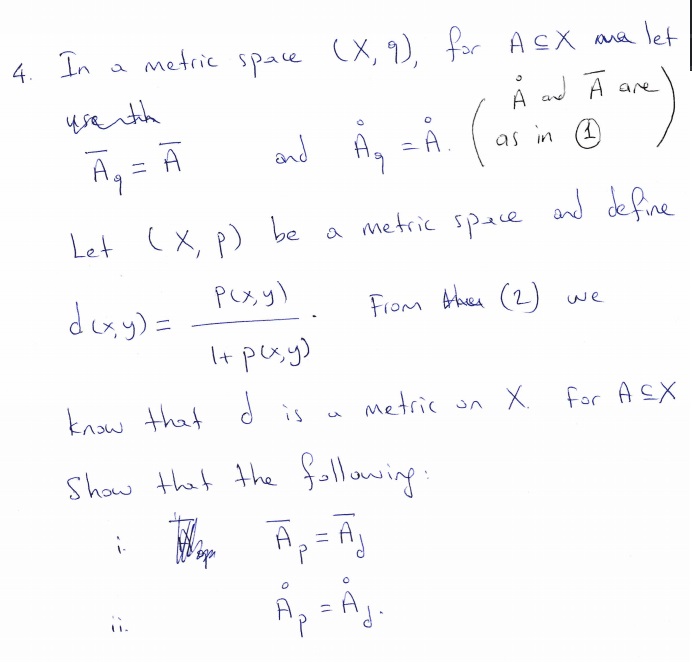 4. In a metric space (X, q), for A ⊆ X let
Ā_q = Ā and Å_q = Å. (Å and Ā are as in ①)
Let (X, p) be a metric space and define
d(x,y) = p(x,y) / (1 + p(x,y)). From (2) we
know that d is a metric on X. For A ⊆ X
Show that the following:
i. Ā_p = Ā_d
ii. Å_p = Å_d.